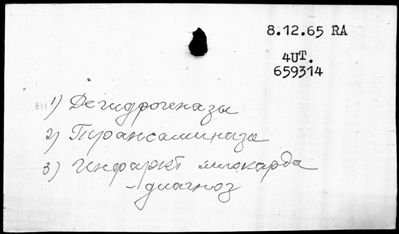 8.12.65 RA
4UT.
659314
1) Дегидрогеназы
2) Трансаминаза
3) Инфаркт миокарда
- диагноз